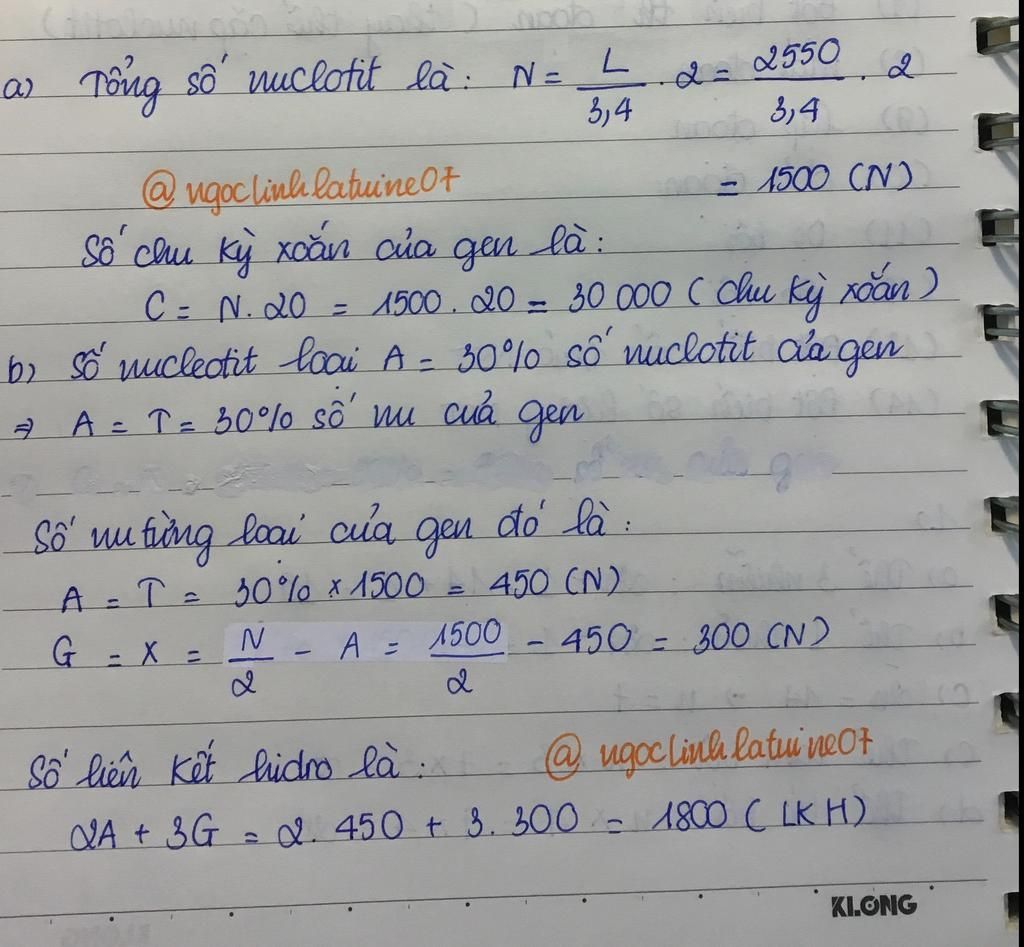 a) Tổng số nuclotit là: N = L/3,4 . 2 = 2550/3,4 . 2
@ngoclinhlatuine07 = 1500 (N)
Số chu kỳ xoắn của gen là:
C = N. 20 = 1500 . 20 = 30 000 ( chu kỳ xoắn )
b) Số nucleotit loại A = 30% số nuclotit của gen
⇒ A = T = 30% số nu của gen
Số nu từng loại của gen đó là :
A = T = 30% × 1500 = 450 (N)
G = X = N/2 - A = 1500/2 - 450 = 300 (N)
Số liên kết hidro là : @ngoclinhlatuine07
2A + 3G = 2. 450 + 3. 300 = 1800 ( LKH)
KLONG